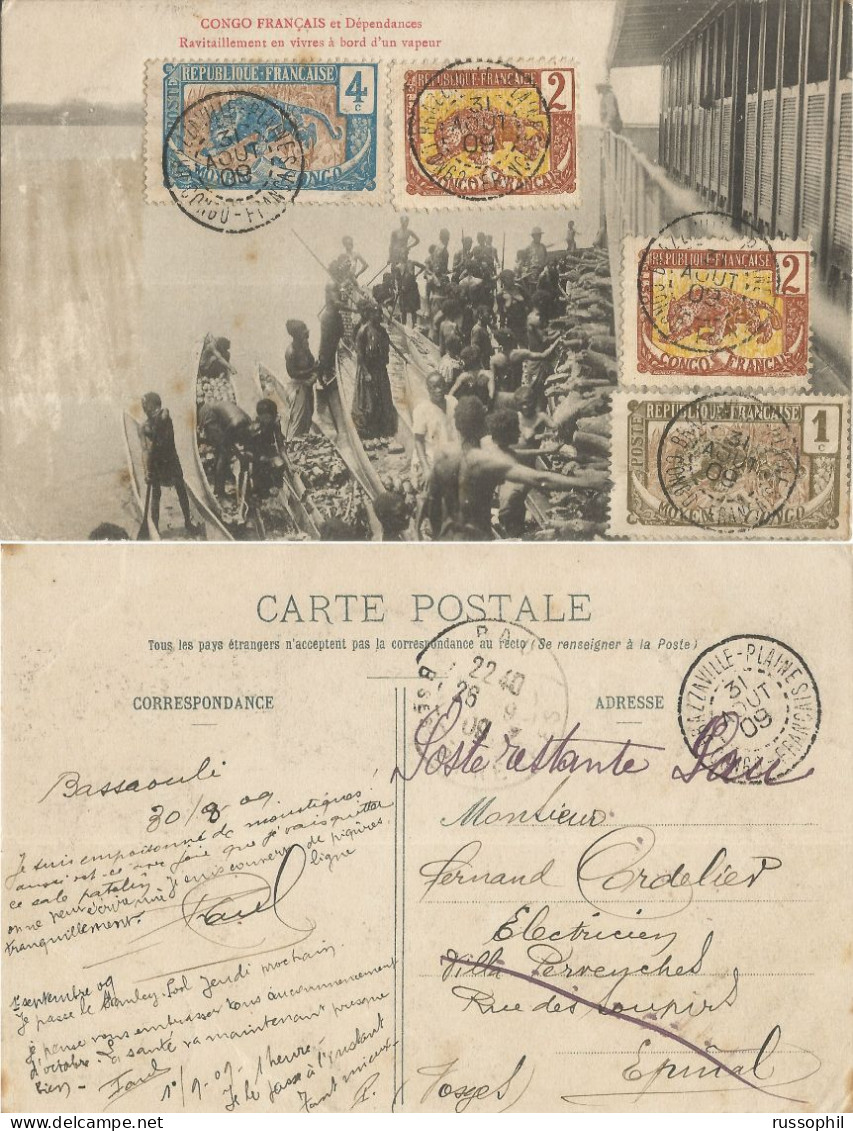 CONGO FRANÇAIS et Dépendances
Ravitaillement en vivres à bord d'un vapeur
REPUBLIQUE·FRANÇAISE
POSTE
4
c
MOYEN CONGO
31
AOUT
09
REPUBLIQUE·FRANÇAISE
2
CONGO FRANÇAIS
31
AOUT
09
REPUBLIQUE·FRANÇAISE
POSTES
2
CONGO FRANÇAIS
AOUT
09
REPUBLIQUE·FRANÇAISE
POSTE
1
c
MOYEN CONGO
31
AOUT
09
CARTE POSTALE
Tous les pays étrangers n'acceptent pas la correspondance au recto (Se renseigner à la Poste)
CORRESPONDANCE
ADRESSE
22 40
26
9
09
BRAZZAVILLE-PLAINE
31
AOUT
09
Poste restante Pau
Monsieur
Fernand Cordelier
Electricien
Villa Pervenches
Rue des Soupirs
Epinal
Vosges
Bassaouli
30/8 09
Je suis empoisonné de moustiques!
aussi est-ce avec joie que je vais quitter
ce sale patelin Je suis couvert de piqûres.
on ne peut écrire une ligne
tranquillement.
Paul
1er septembre 09
Je passe le Stanley-Pool Jeudi prochain.
Je pense vous embrasser tous au commencement
d'octobre. La santé va maintenant presque
bien - Paul
1°/9-09. 1 heure.
Je le passe à l'instant
Tant mieux.
P.
russophil